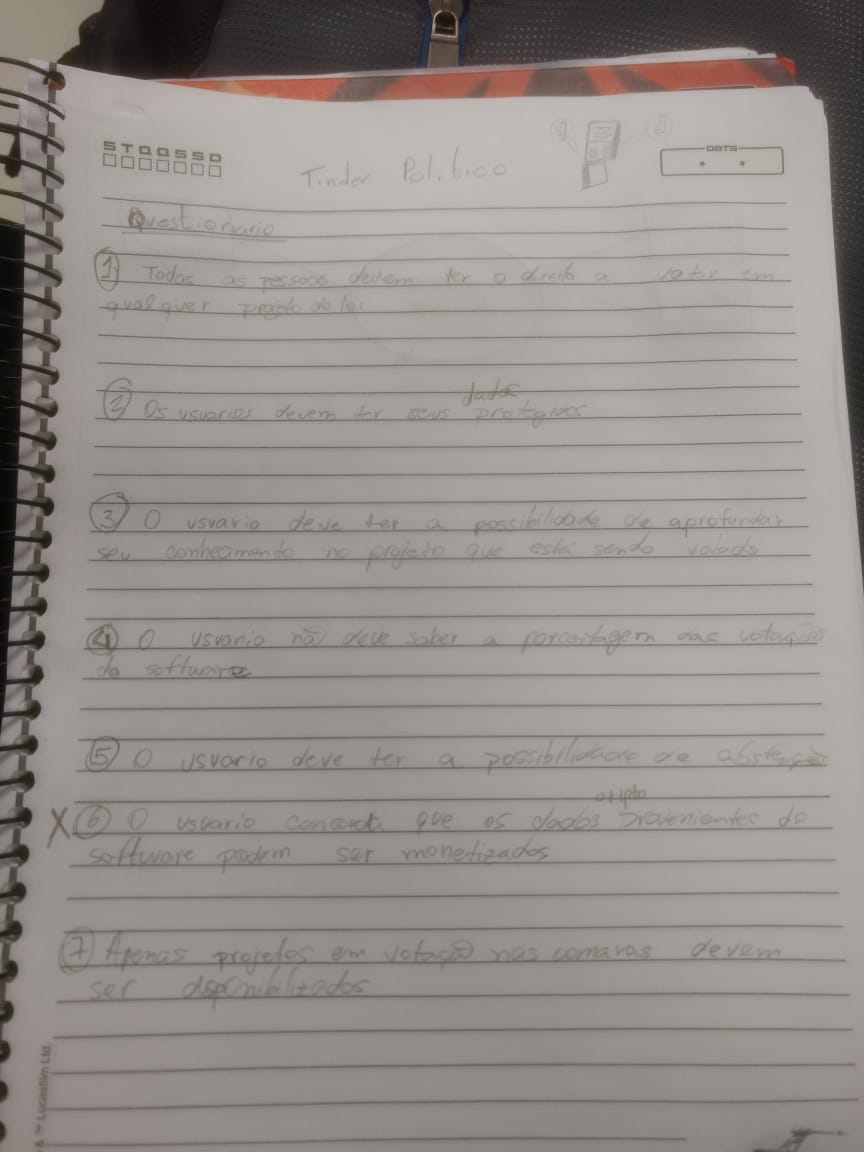 STQQSSD
DATA
Tinder Político
Questionario
1 Todas as pessoas devem ter o direito a votar em
qualquer projeto de lei
2 Os usuarios devem ter seus dados protegidos
3 O usuario deve ter a possibilidade de aprofundar
seu conhecimento no projeto que está sendo votado
4 O usuario não deve saber a porcentagem das votações
do software
5 O usuario deve ter a possibilidade de abstenção
X 6 O usuario concorda que os dados cripto provenientes do
software podem ser monetizados
7 Apenas projetos em votação nas camaras devem
ser disponibilizados
& ™ Lucasfilm Ltd.